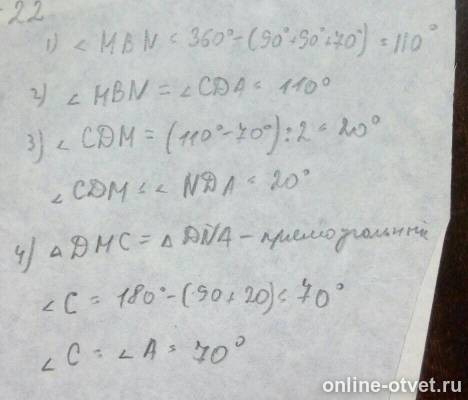 22
1) ∠MBN = 360°-(90°+90°+70°) = 110°
2) ∠MBN = ∠CDA = 110°
3) ∠CDM = (110°-70°):2 = 20°
∠CDM = ∠NDA = 20°
4) △DMC = △DNA - прямоугольный
∠C = 180°-(90+20) = 70°
∠C = ∠A = 70°
online-otvet.ru